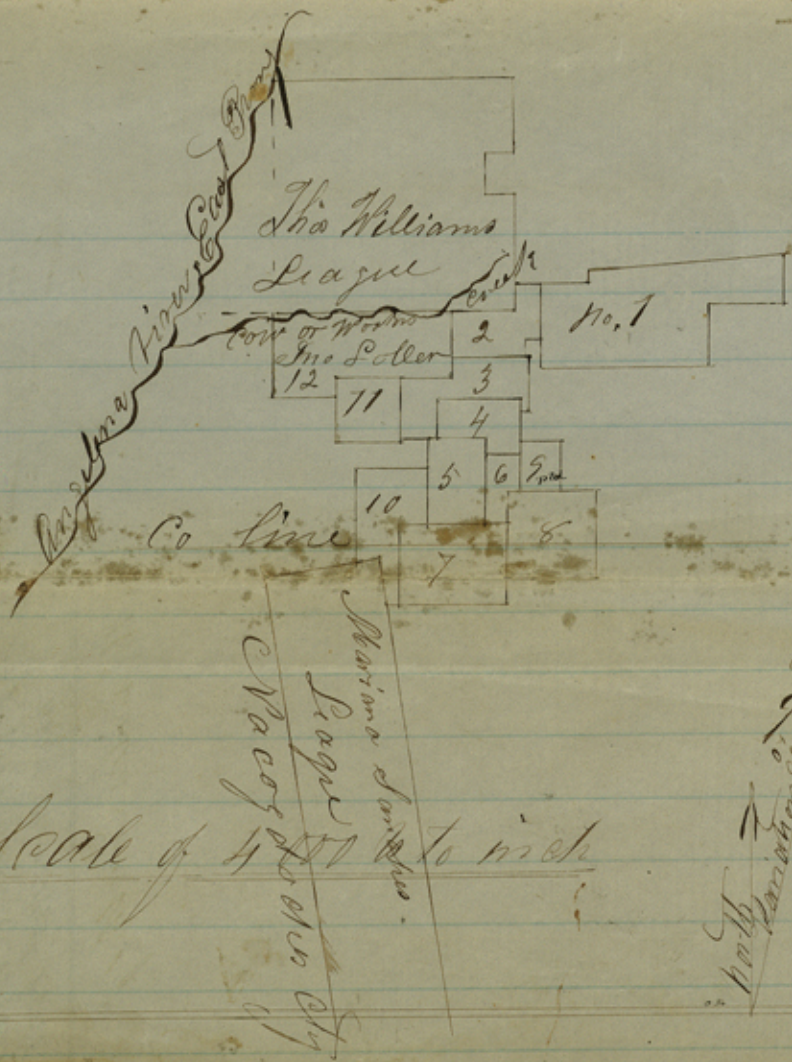 Angelina River East Prong
Tho Williams
League
Creek
No. 1
Cow or Worms
Jno Loller
2
12
3
11
4
5
6
10
8
Co line
7
Mariano Sanches
League
Nacogdoches Cty
Scale of 4000 to inch
North